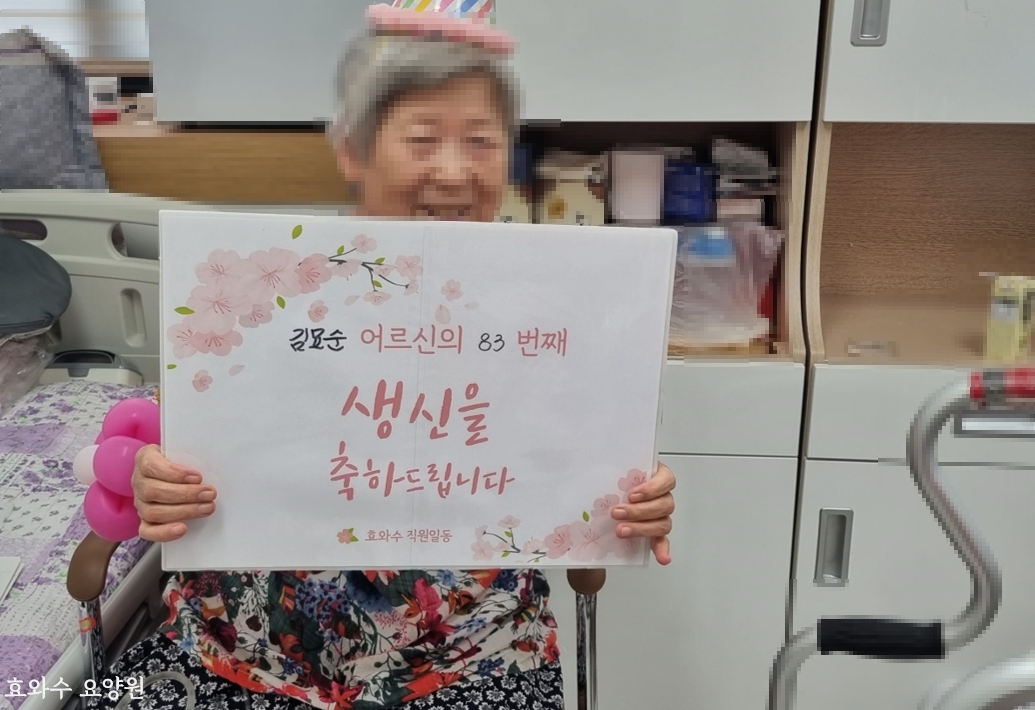 김묘순 어르신의 83 번째
생신을
축하드립니다
효와수 직원일동
효와수 요양원